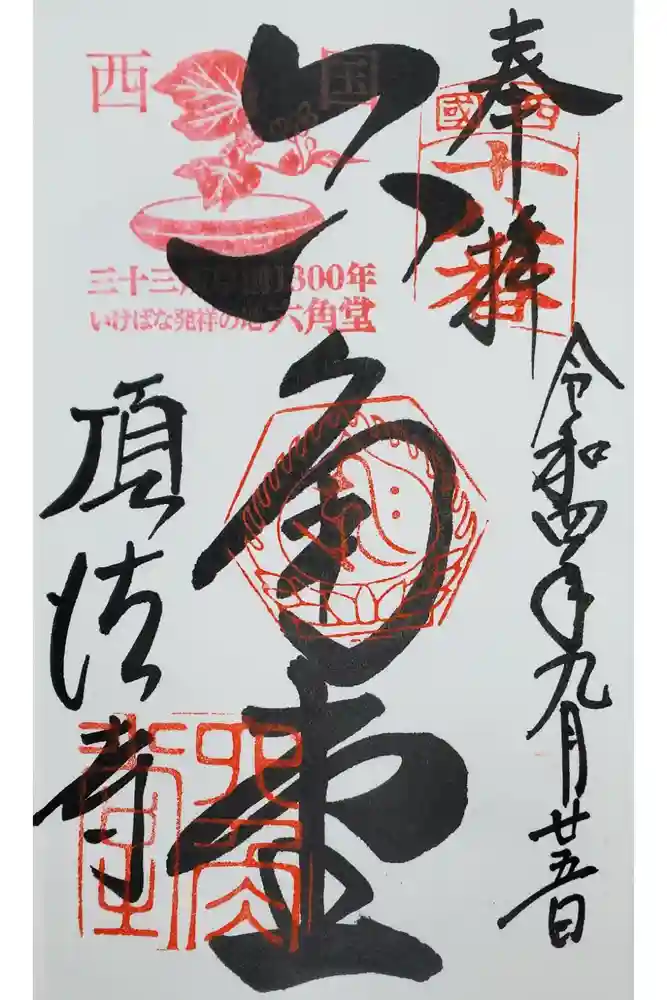 奉拝
西國
十八番
令和四年九月廿五日
六角堂
西国
三十三所草創1300年
いけばな発祥の地 六角堂
頂法寺